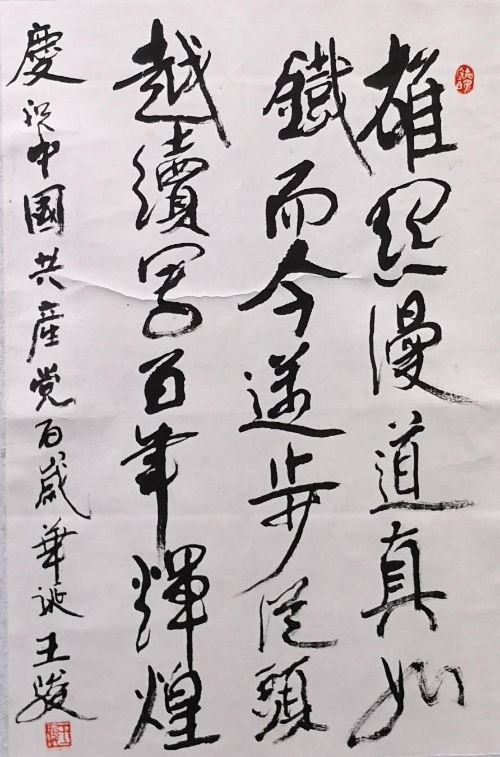 雄關漫道真如
鐵而今邁步從頭
越續写百年輝煌
慶祝中國共産党百歲華诞王骏